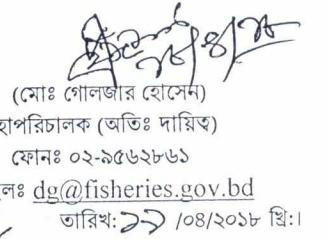 (মোঃ গোলজার হোসেন)
হাপরিচালক (অতিঃ দায়িত্ব)
ফোনঃ ০২-৯৫৬২৮৬১
লঃ dg@fisheries.gov.bd
তারিখ: ১৯ /০৪/২০১৮ খ্রি:।